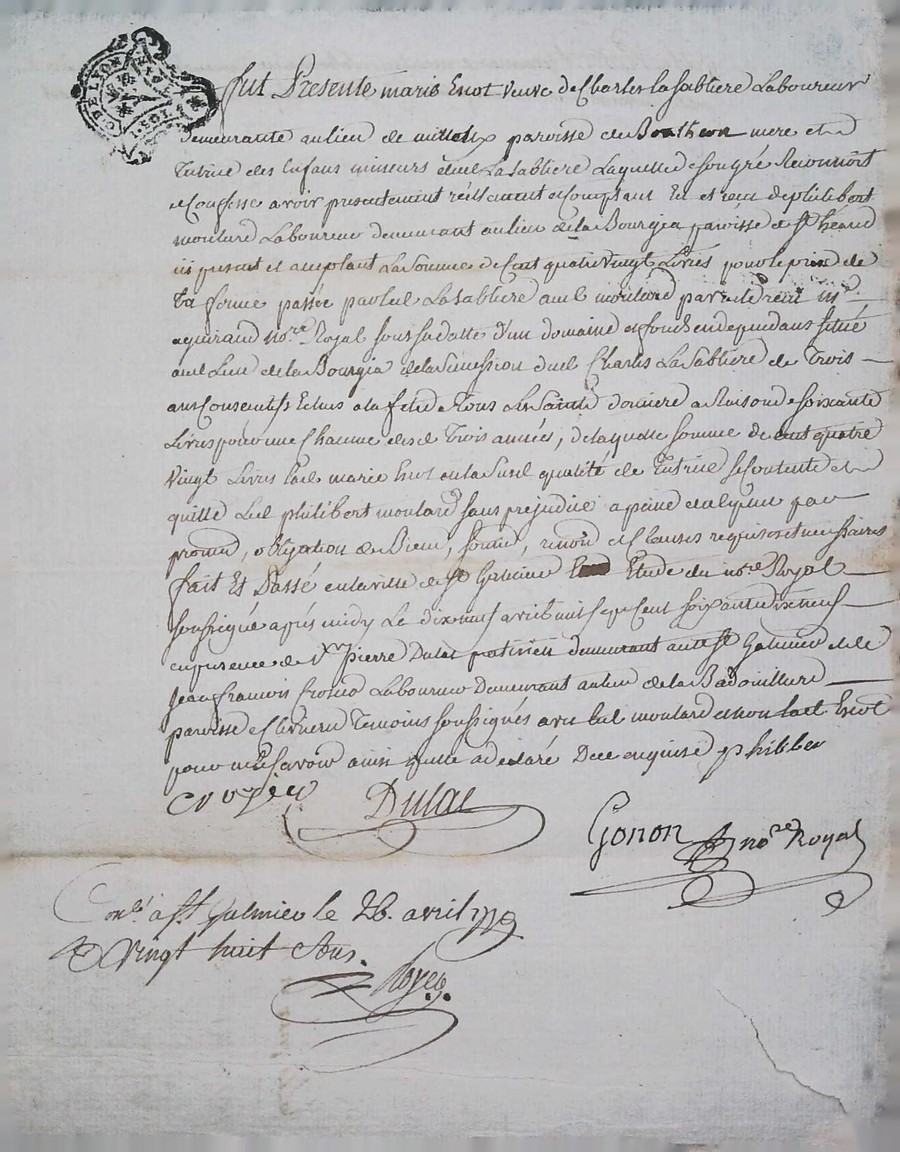 G. DE LYON
1. SOL
fut Presente marie Enot veuve de Charles la sabliere Laboureur
demeurante au lieu de paroisse de Boutheon mere et
Tutrice des Enfans mineurs dud. LaSabliere Laquelle de son gré Reconnoit
et Confesse avoir presentement réellement et Comptant Eu et reçu de philibert
moulard Laboureur demeurant au lieu de la Bourgia paroisse de St. héand
ici present et acceptant La Somme de Cent quatre vingt Livres pour le prix de
la ferme passée par led. LaSabliere aud. moulard par acte reçu me.
nore. Royal sous sa datte d'un domaine et fonds en dependans situé
aud. Lieu de la Bourgia de la Succession dud. Charles LaSabliere de Trois
ans Consecutifs Echus a la fete de Tous Les Saints derniere a Raison de soixante
Livres pour une Chacune desd. Trois années, de laquelle somme de cent quatre
Vingt Livres lad. marie Enot en la susd. qualité de Tutrice se Contente et
quitte Led. philibert moulard sans prejudice a peine de tous depens par
promis, obligation de Biens, soumis, renon. et Clauses requises et necessaires
fait Et Passé en la ville de St. Galmier Etude du nore. Royal
soussigné après midy Le dix neuf avril mil sept cent soixante dix neuf
en presence de Sr. pierre Dulac praticien demeurant aud. St. Galmier et de
Jean francois Laboureur Demeurant au lieu de la Badouillere
paroisse de Temoins soussignés avec led. moulard et non lad. Enot
pour ne Sçavoir ainsi qu'elle a déclaré De ce enquise philiber
Dulac
Gonon nore. Royal
Conlé. a St. galmier le 26. avril 1779
R. Vingt huit Sous.
Royer.